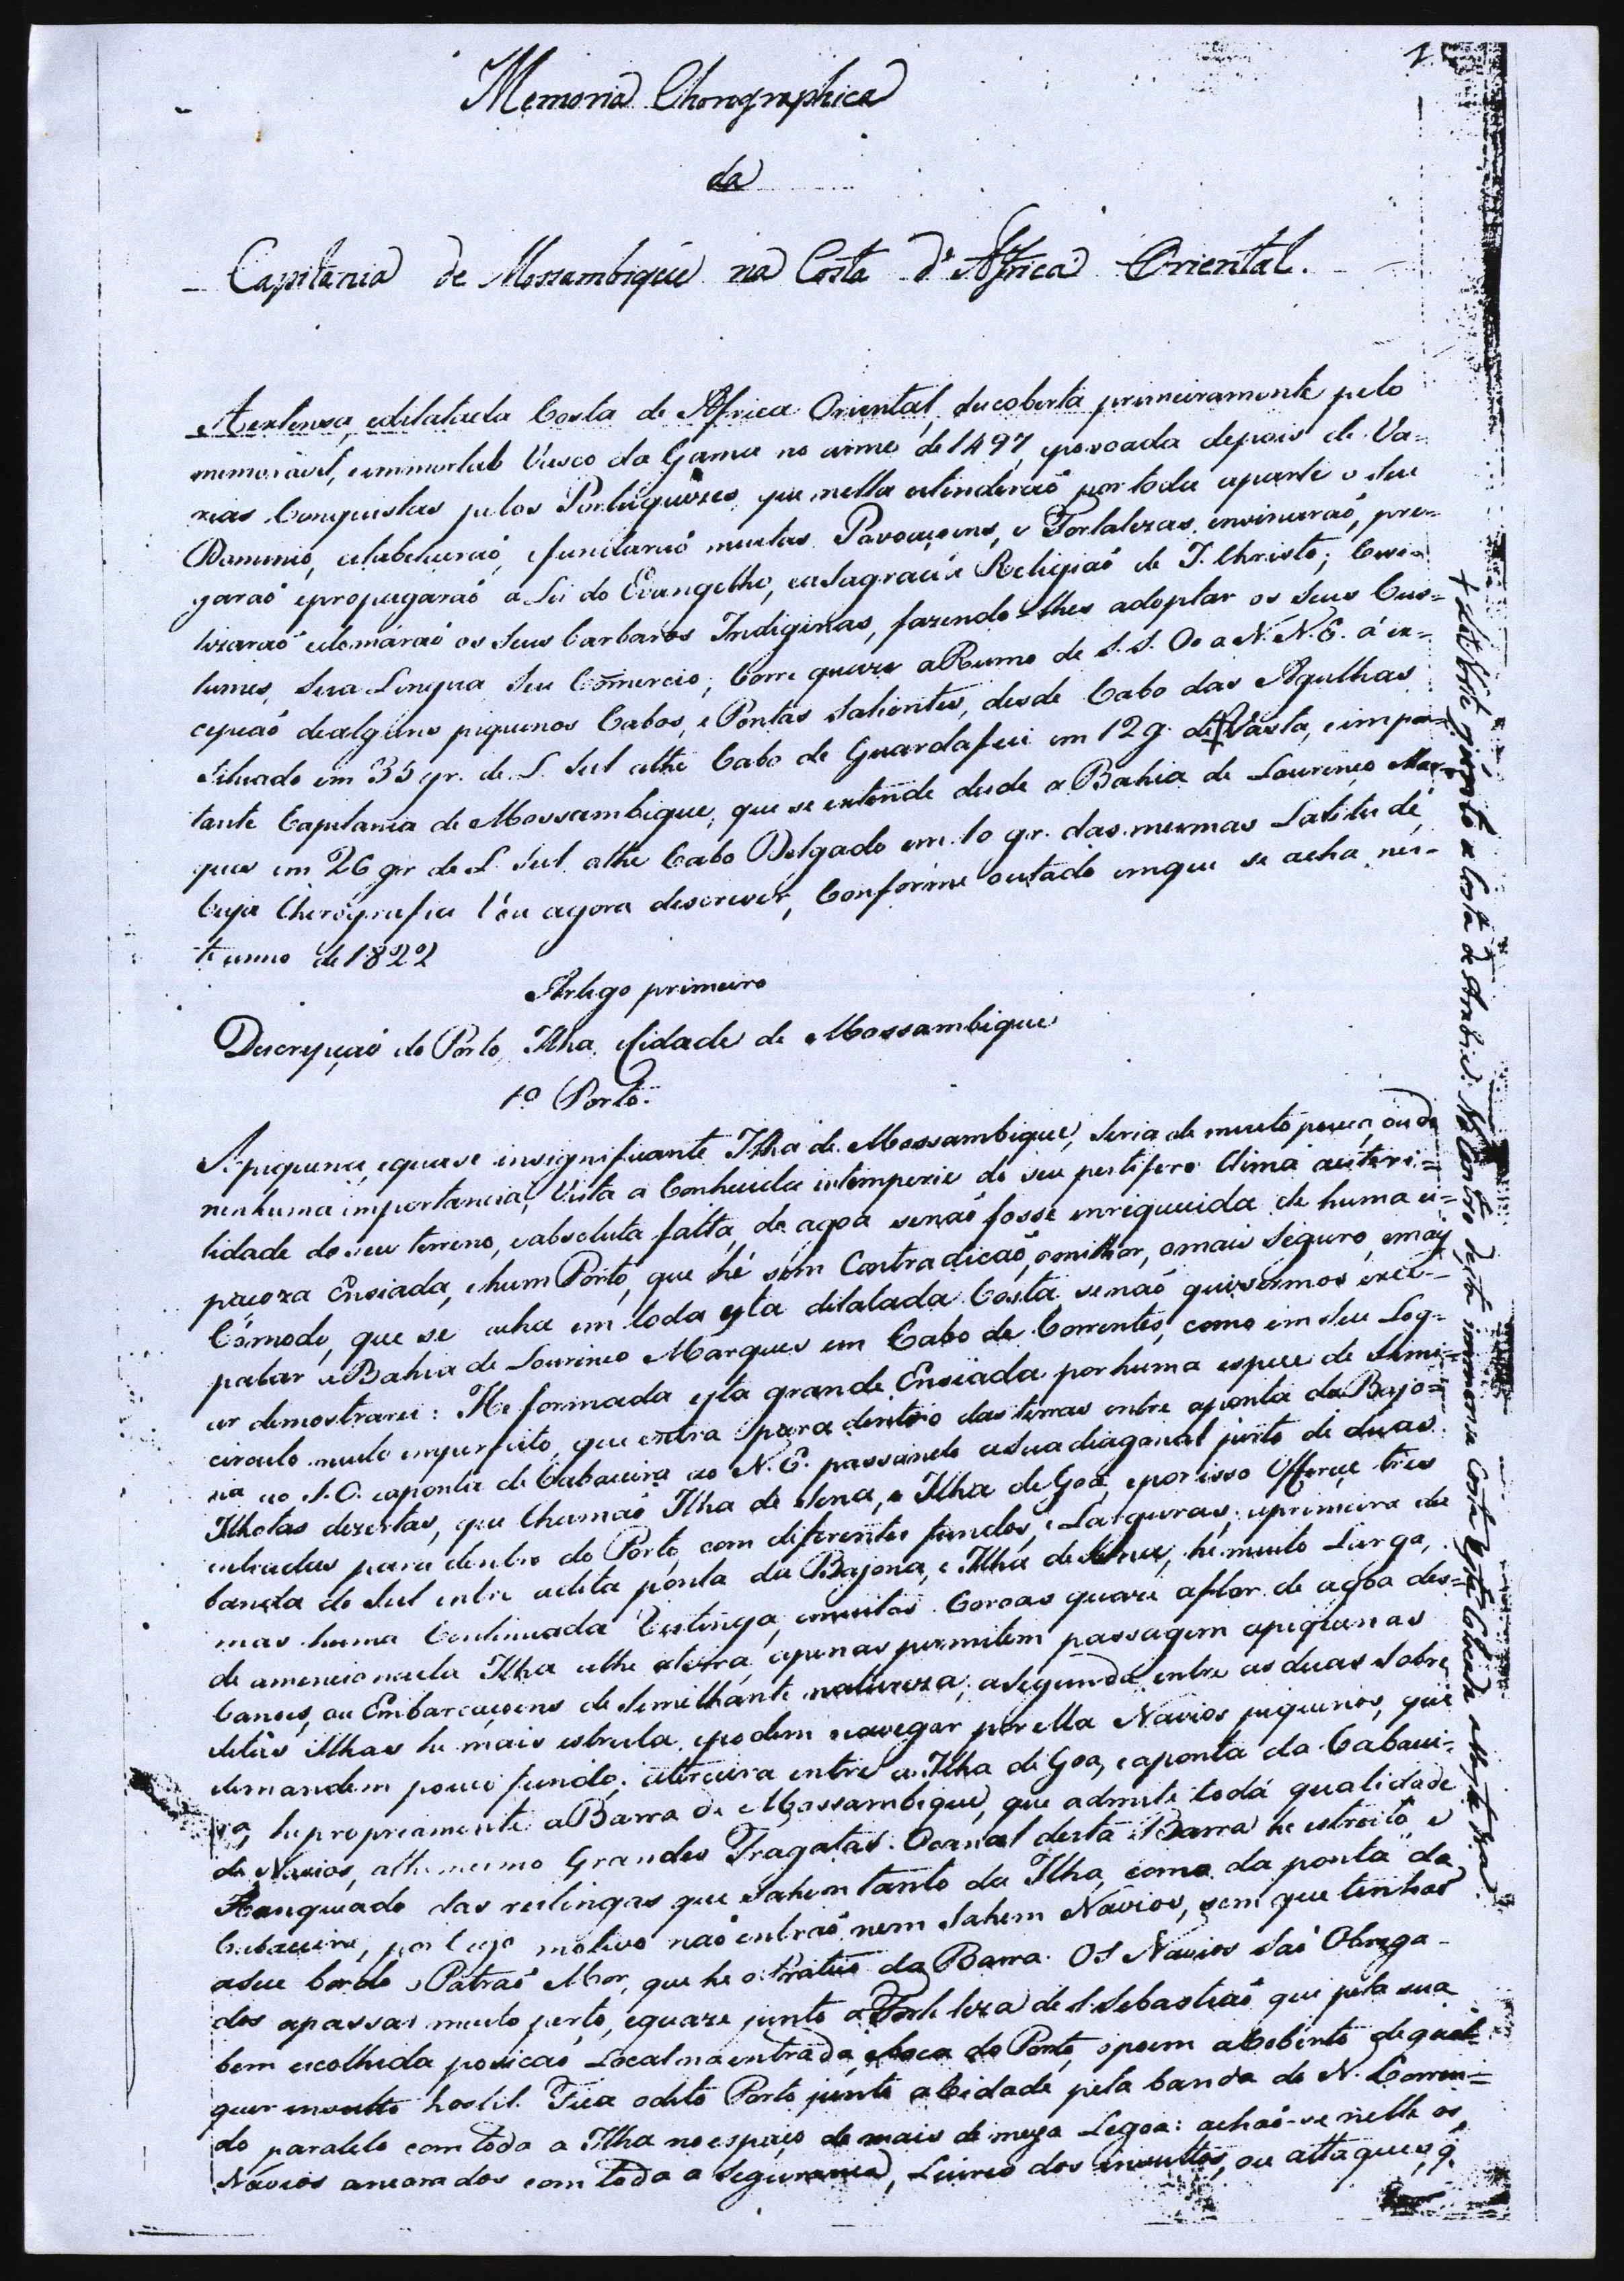 1
Memoria Chorographica
da
Capitania de Mossambique na Costa d'Africa Oriental.
A extensa, edilatada Costa de Africa Oriental, descoberta primeiramente pelo
memoravel, eimmortal Vasco da Gama no anno de 1497, epovoada depois de Va=
rias Conquistas pelos Portuguezes, que nella estenderaõ por toda aparte o seu
Dominio, estabeleceraõ, efundaraõ muitas Povoaçoens, e Fortalezas, ensinaraõ, pre=
garaõ epropagaraõ a Lei do Evangelho, easagrada Religiaõ de J. Christo; Civi=
lizaraõ edomáraõ os seus barbaros Indiginas, fazendo-lhes adoptar os seus Cus=
tumes, sua Lingua seu Cõmercio; Corre quaze aRumo de S.S.Oo a N.N.E. á ex=
cepçaõ dealguns piquenos Cabos, e Pontas salientes, desde Cabo das Agulhas
situado em 35 gr. de L. Sul athe Cabo de Guardafui em 12 g. de + Vasta, eimpor=
tante Capitania de Mossambique, que se extende desde a Bahia de Lourenço Mar=
ques em 26 gr de L. Sul athe Cabo Delgado em 10 gr. das mesmas Latitude,
Cuja Chorografia vou agora descrever, Conforme oestado emque se acha nes=
te anno de 1822
Artigo primeiro
Descripçaõ do Porto, Ilha, eCidade de Mossambique
1º Porto.
A piquena, equase insignificante Ilha de Mossambique, seria de muito pouca, ou de
nenhuma importancia, Vista a Conhecida intemperie do seu pestifero Clima aesteri=
lidade do seu terreno, eabsoluta falta de agoa senaõ fosse enriquecida de huma es=
paçoza Enseada, ehum Porto, que hé sem Contradicaõ, omilhor, omais seguro, emais
Cómodo, que se acha em toda esta dilatada Costa senaõ quizermos exce=
ptuar a Bahia de Lourenço Marques em Cabo de Correntes, como em seu Log=
ar demostrarei: He formada esta grande Enseada por huma especie de Semi=
circulo muito imperfeito, que entra para dentro das terras entre aponta da Bajo=
na ao S.O. eaponta de Cabaceira ao N.E. passando asuadiagonal junto de duas
Ilhotas dezertas, que Chamaõ Ilha de Sena, e Ilha de Goa, epor isso Offerece tres
entradas para dentro do Porto, com diferentes fundos, e Larguras; aprimeira da
banda do Sul entre adita ponta da Bajona, e Ilha de Sena, he muito Larga,
mas huma Continuada Restinga, emuitas Coroas quaze aflor de agoa des=
de amencionada Ilha athe aterra, apenas permitem passagem apiquenas
Canoas, ou Embarcaçoens de Semilhante natureza; asegunda entre as duas sobre
ditas Ilhas he mais estreita, epodem navegar por ella Navios piquenos, que
demandem pouco fundo; aterceira entre a Ilha de Goa, eaponta da Cabacei=
ra, he propriamente aBarra de Mossambique, que admite toda qualidade
de Navios, athe mesmo Grandes Fragatas. Ocanal desta Barra he estreito e
flanqueado das restingas que sahem tanto da Ilha, como da ponta da
Cabaceira, por Cujo motivo naõ entraõ nem Sahem Navios, sem que tenhaõ
aseu bordo o Patraõ Mor, que he o Pratico da Barra. Os Navios saõ Obriga-
dos apassar muito perto, equaze junto a Fortaleza de S. Sebastiaõ que pela sua
bem escolhida posicaõ Local na entrada, eboca do Porto, opoem aCoberto dequal
quer insulto hostil. Fica odito Porto junto aCidade pela banda do N. Corren=
do paralelo com toda a Ilha no espaço de mais de meya Legoa: achaõ-se nelle os
Navios ancorados com toda a Segurança, Livres dos insultos, ou attaques, q̃
+ Lat. Norte junto a Costa de Arabia: No Centro desta immensa Costa Está Colocada